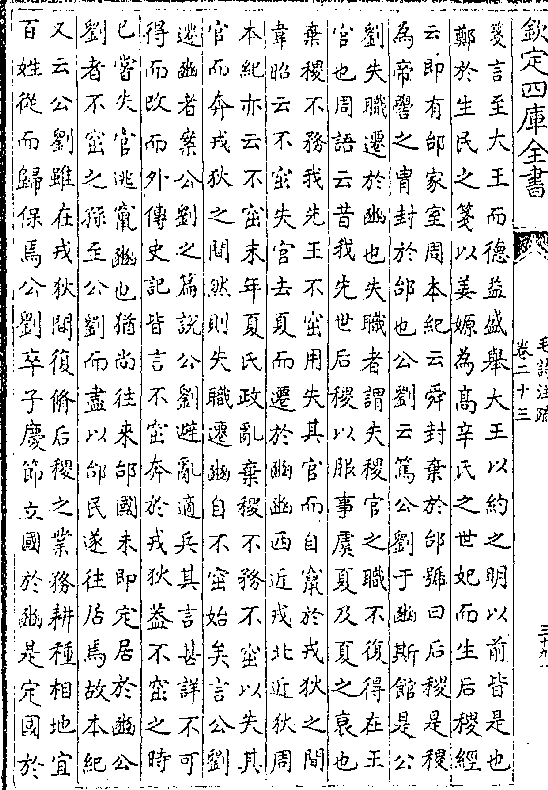 欽定四庫全書
毛詩注疏
卷二十三
箋言至大王而德益盛舉大王以約之明以前皆是也
鄭於生民之箋以姜嫄為高辛氏之世妃而生后稷經
云即有邰家室周本紀云舜封棄於邰號曰后稷是稷
為帝嚳之胄封於邰也公劉云篤公劉于豳斯館是公
劉失職遷於豳也失職者謂失稷官之職不復得在王
官也周語云昔我先世后稷以服事虞夏及夏之衰也
棄稷不務我先王不窋用失其官而自竄於戎狄之間
韋昭云不窋失官去夏而遷於豳豳西近戎北近狄周
本紀亦云不窋末年夏氏政亂棄稷不務不窋以失其
官而奔戎狄之間然則失職遷豳自不窋始矣言公劉
遷豳者案公劉之篇說公劉避亂適兵其言甚詳不可
得而改而外傳史記皆言不窋奔於戎狄蓋不窋之時
已嘗失官逃竄豳也猶尚往來邰國未即定居於豳公
劉者不窋之孫至公劉而盡以邰民遂往居焉故本紀
又云公劉雖在戎狄間復脩后稷之業務耕種相地宜
百姓從而歸保焉公劉卒子慶節立國於豳是定國於